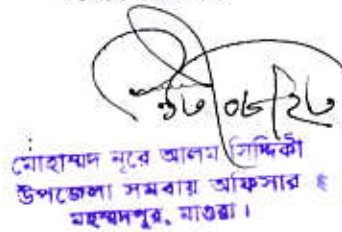 মোহাম্মদ নূরে আলম সিদ্দিকী
উপজেলা সমবায় অফিসার
মহম্মদপুর, মাগুরা।